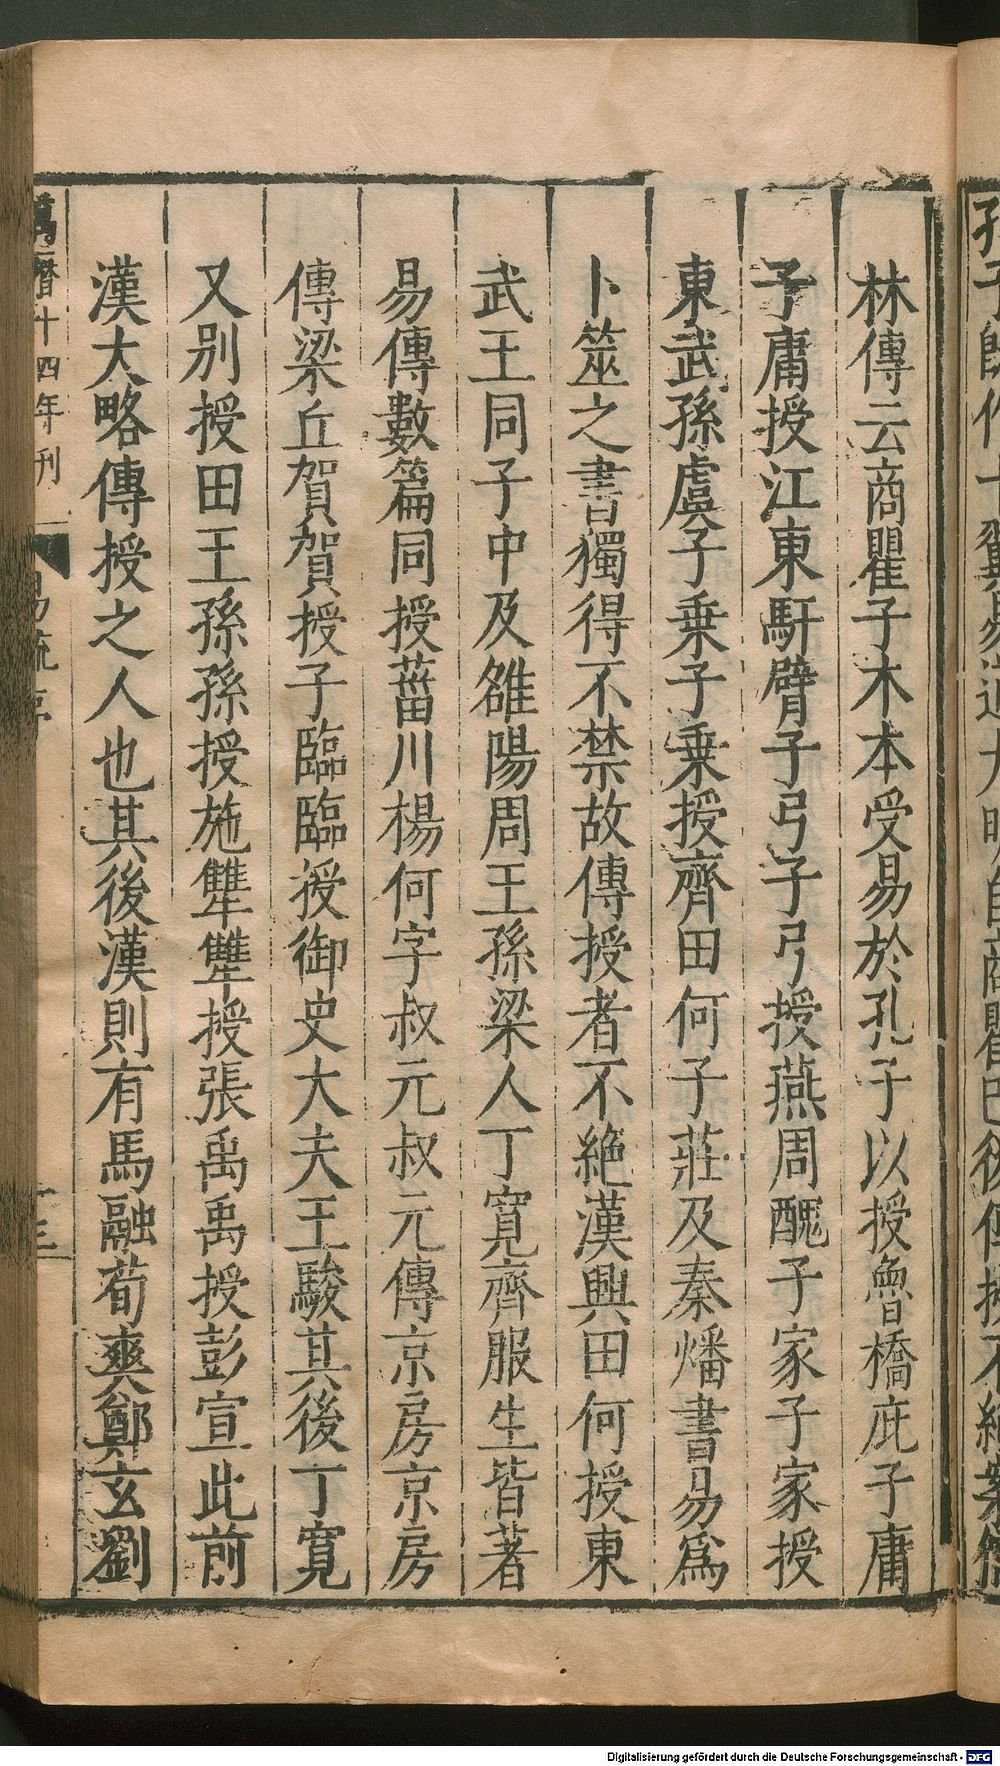 林傳云商瞿子木本受易於孔子以授魯橋庇子庸
子庸授江東馯臂子弓子弓授燕周醜子家子家授
東武孫虞子乗子乗授齊田何子莊及秦燔書易爲
卜筮之書獨得不禁故傳授者不絶漢興田何授東
武王同子中及雒陽周王孫梁人丁寛齊服生皆著
易傳數篇同授菑川楊何字叔元叔元傳京房京房
傳梁丘賀賀授子臨臨授御史大夫王駿其後丁寛
又别授田王孫孫授施犫犫授張禹禹授彭宣此前
漢大略傳授之人也其後漢則有馬融荀爽鄭玄劉
萬曆十四年刊
易疏序
Digitalisierung gefördert durch die Deutsche Forschungsgemeinschaft - DFG